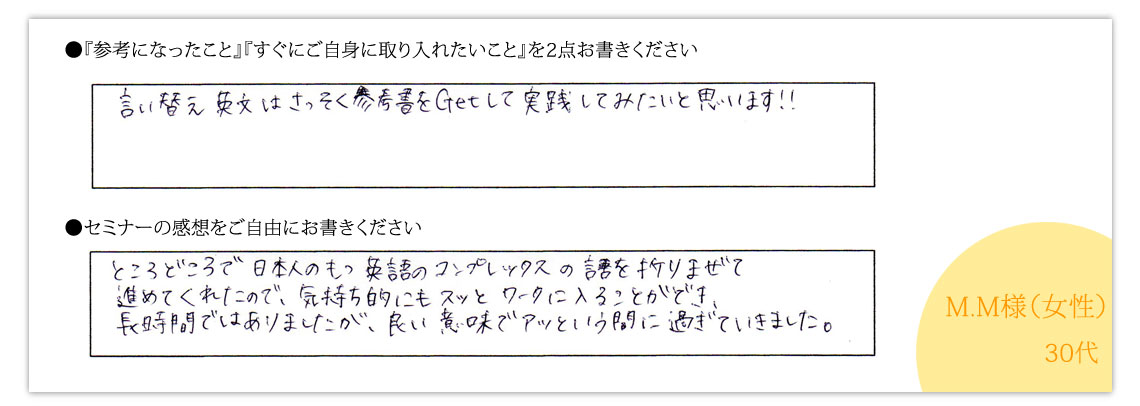 ●『参考になったこと』『すぐにご自身に取り入れたいこと』を2点お書きください
言い替え英文はさっそく参考書をGetして実践してみたいと思います!!
●セミナーの感想をご自由にお書きください
ところどころで日本人のもつ英語のコンプレックスの話を折りまぜて
進めてくれたので、気持ち的にもスッとワークに入ることができ、
長時間ではありましたが、良い意味でアッという間に過ぎていきました。
M.M様(女性)
30代